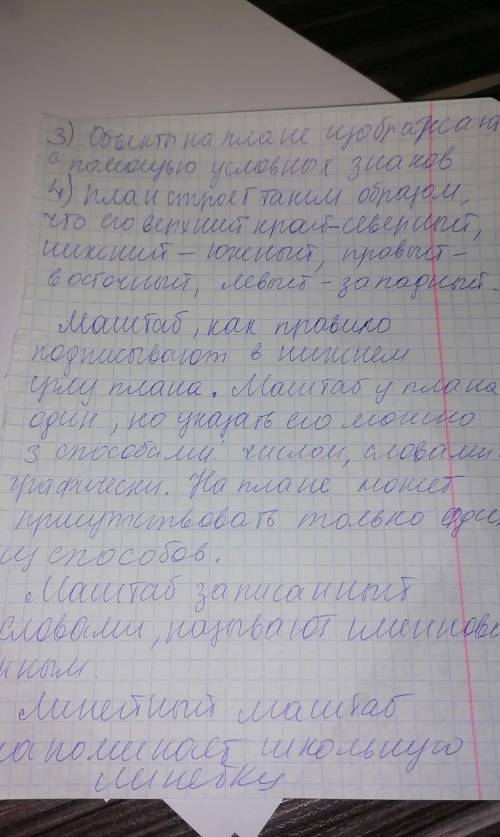 3) Объекты на плане изображают
с помощью условных знаков
4) план строят таким образом,
что его верхний край-северный,
нижний - южный, правый -
восточный, левый - западный.
Маштаб, как правило
подписывают в нижнем
углу плана. Маштаб у плана
один, но указать его можно
3 способами: числом, словами.
графически. На плане может
присутствовать только один
из способов.
Маштаб записанный
словами, называют именнова
нным.
Линейный маштаб
напоминает школьную
линейку